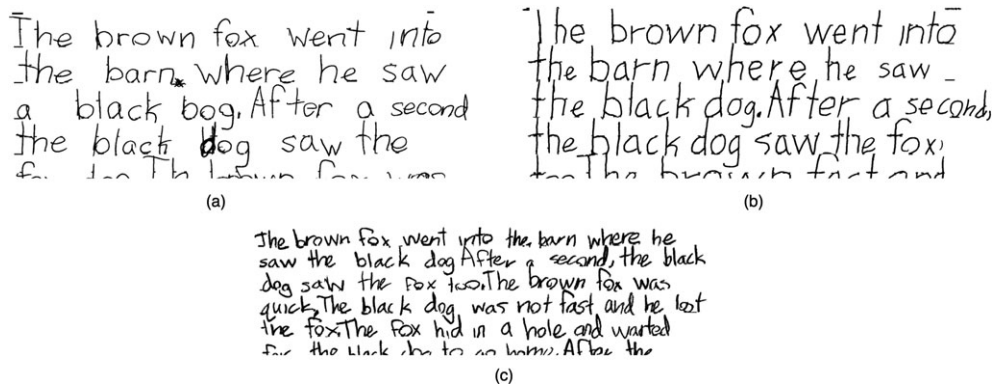 The brown fox went into
the barn where he saw
a black bog. After a second
the black dog saw the
(a)
The brown fox went into
the barn where he saw
the black dog. After a second,
the black dog saw the fox,
too. The brown fast and
(b)
The brown fox went into the barn where he
saw the black dog After a second, the black
dog saw the fox too. The brown fox was
quick. The black dog was not fast and he lost
the fox. The fox hid in a hole and waited
for the black dog to go home. After the
(c)